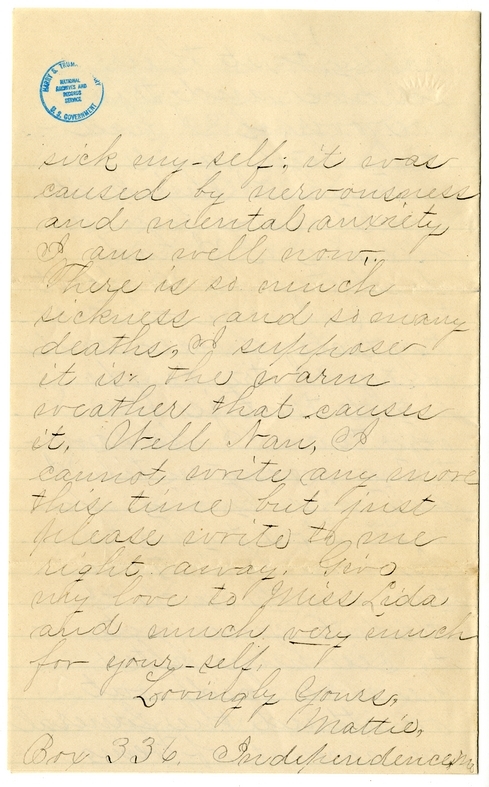 HARRY S. TRUMAN LIBRARY
NATIONAL
ARCHIVES AND
RECORDS
SERVICE
U. S. GOVERNMENT
sick my-self; it was
caused by nervousness
and mental anxiety
I am well now.
There is so much
sickness and so many
deaths, I suppose
it is the warm
weather that causes
it. Well Nan, I
cannot write any more
this time but just
please write to me
right away. Give
my love to Miss Lida
and much very much
for your-self.
Lovingly Yours,
Mattie,
Box 336. Independence, Mo